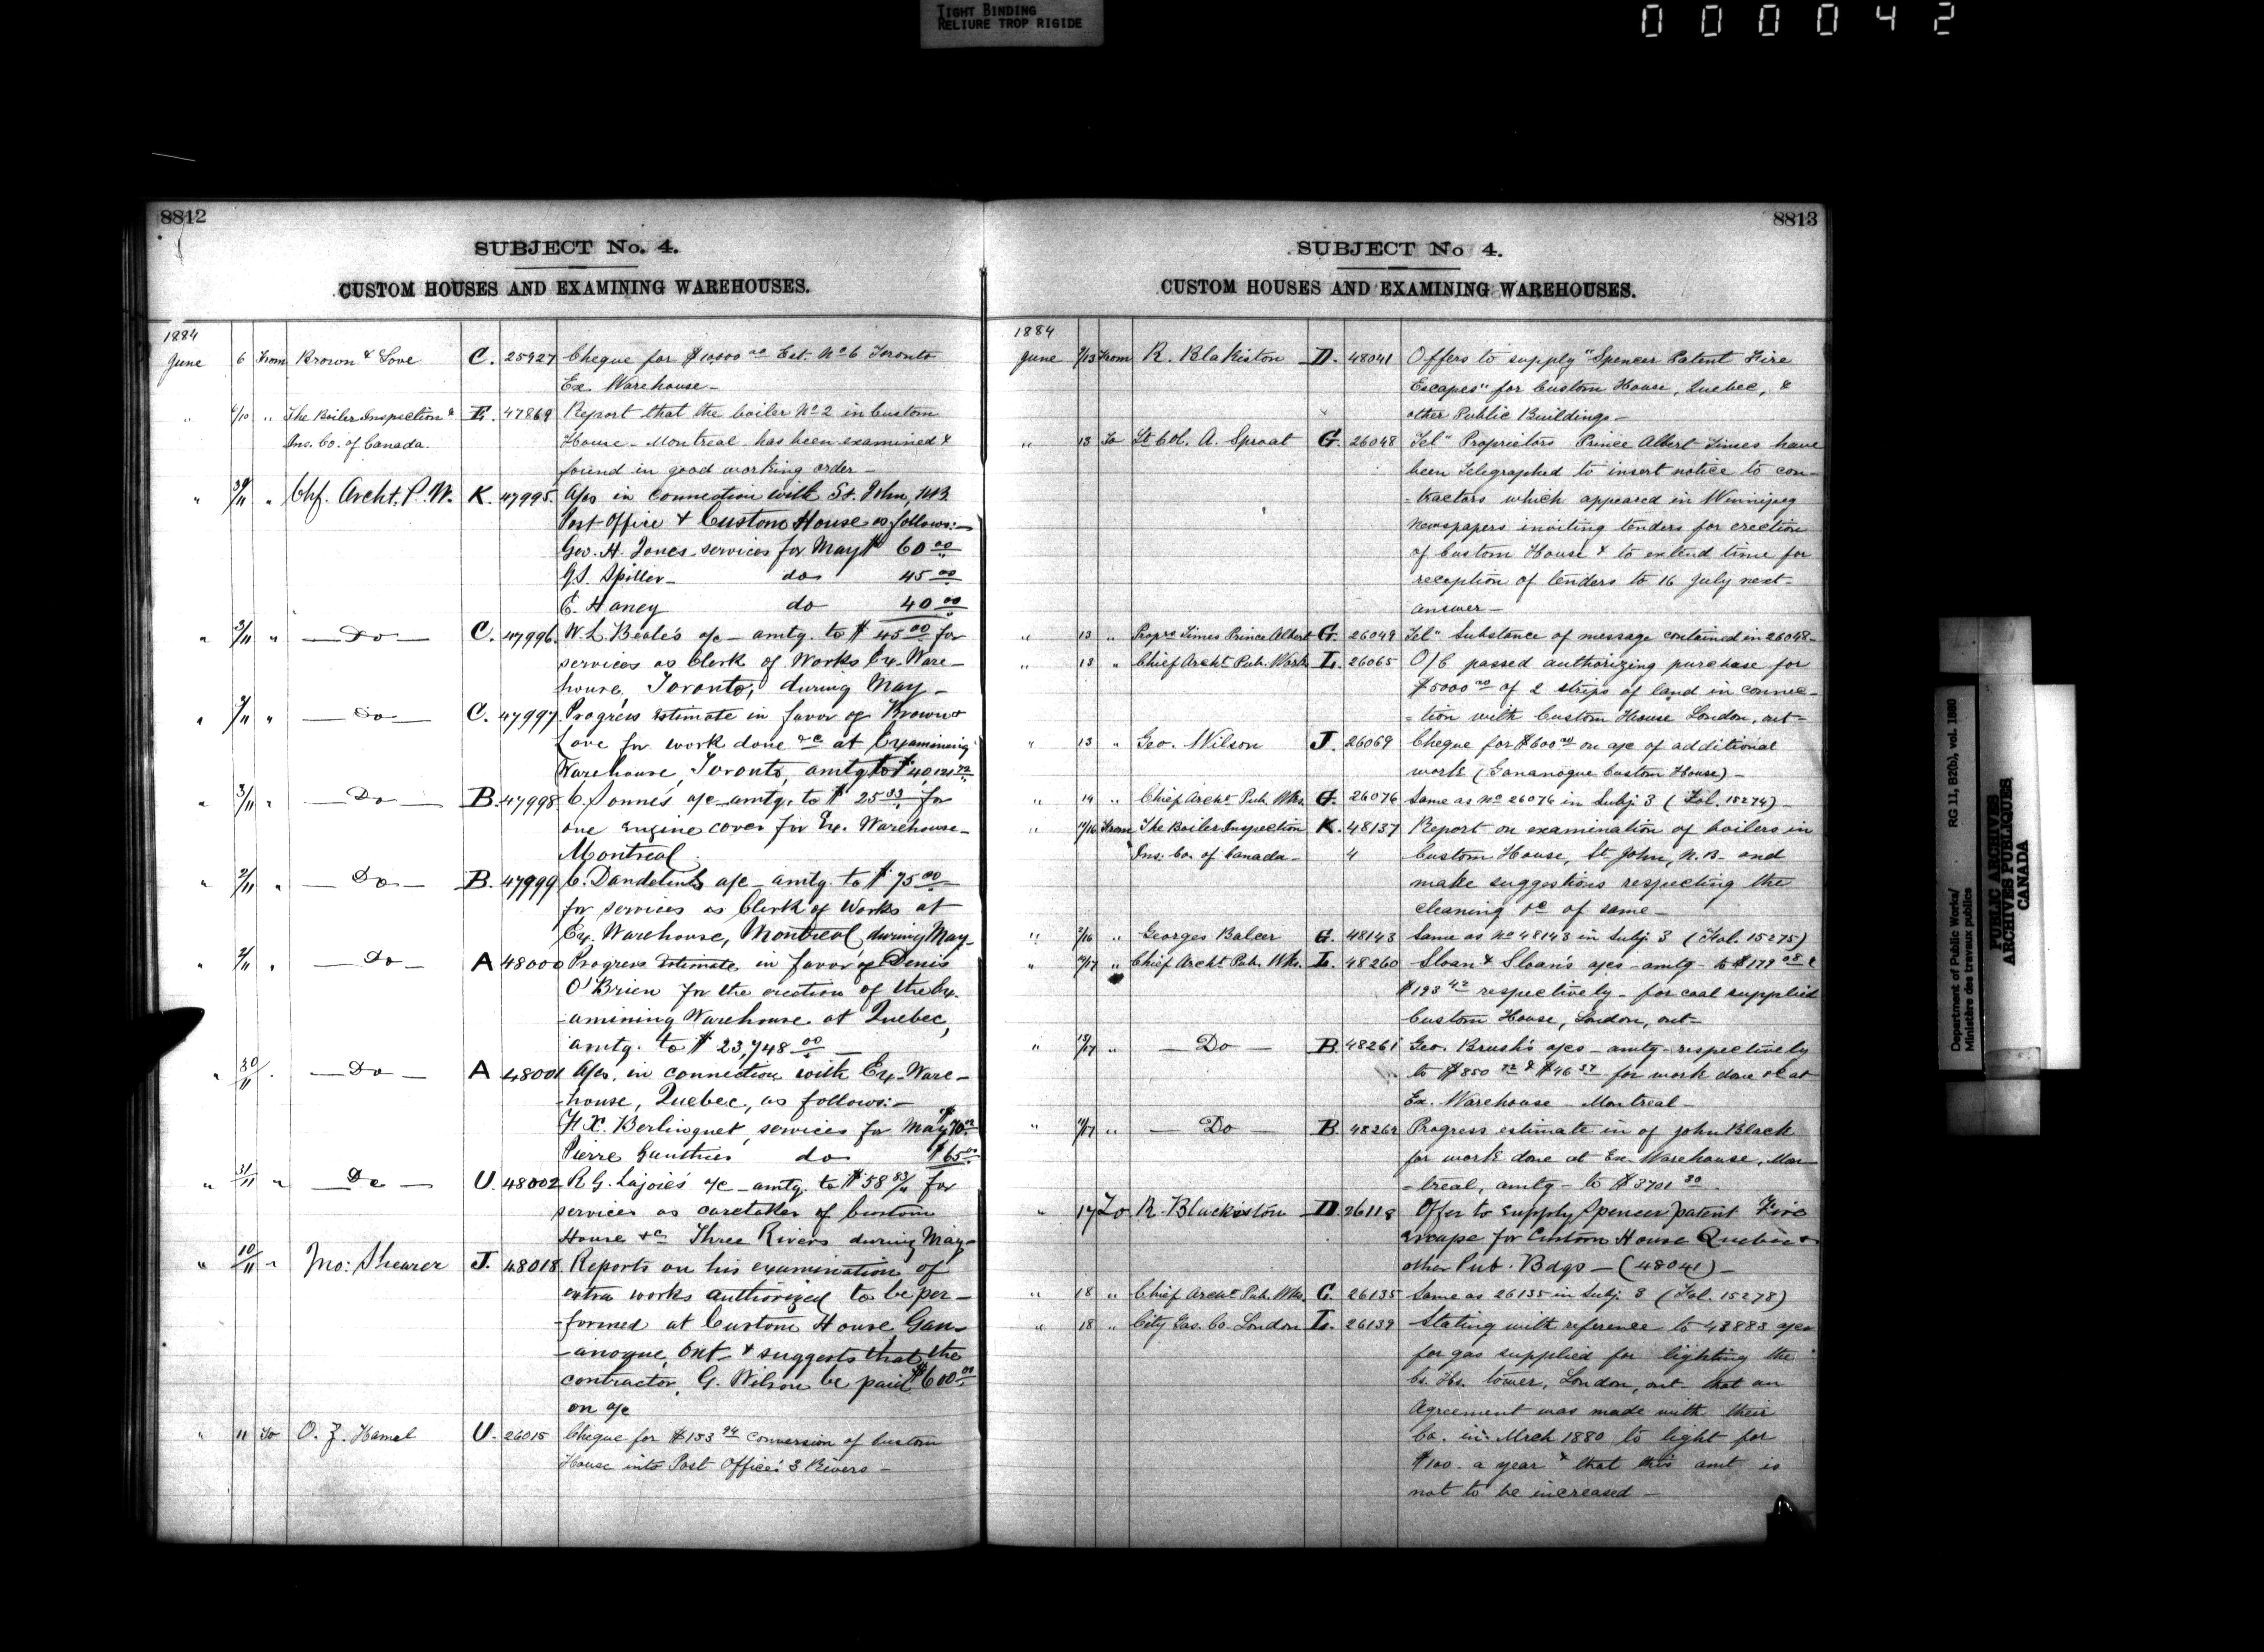 TIGHT BINDING
RELIURE TROP RIGIDE
000042
8812
SUBJECT No. 4.
CUSTOM HOUSES AND EXAMINING WAREHOUSES.
1884
June 6 From Brown & Love C. 25927 Cheque for $10000 00 Est. No 6 Toronto
Ex. Warehouse-
" 6/10 " The Boiler Inspection & E. 47869 Report that the boiler No 2 in Custom
Ins. Co. of Canada. House - Montreal - has been examined &
found in good working order -
" " Chf. Archt. P. W. K. 47995. A/cs in connection with St. John, N.B.
Post Office & Custom House as follows:-
Geo. H. Jones - services for May $ 60 00
G.S. Spiller - do 45 00
E. Haney do 40 00
" 3/11 " - Do - C. 47996. W. L. Beale's a/c - amtg. to $ 45 00 for
services as Clerk of Works Ex. Ware-
house, Toronto, during May -
" " - Do - C. 47997. Progress Estimate in favor of Brown &
Love for work done &c at Examining
Warehouse, Toronto, amtg to $
" 3/11 " - Do - B. 47998 a/c - amtg. to $ 25 33 for
one Engine cover for Ex. Warehouse -
Montreal.
" 2/11 " - Do - B. 47999 C. a/c - amtg. to $ 75 00
for services as Clerk of Works at
Ex. Warehouse, Montreal, during May -
" 2/11 " - Do - A 48000 Progress Estimate in favor of Denis
O'Brien for the erection of the Ex-
amining Warehouse at Quebec,
amtg. to $ 23,748 00
" 30/11 " - Do - A 48001 A/cs. in connection with Ex. Ware-
house, Quebec, as follows:-
F.X. Berlinguet, services for May $ 70 00
Pierre Gauthier do $ 65 00
" 31/11 " - Do - U. 48002 R. G. Lajoie's a/c - amtg. to $ 58 83/11 for
services as caretaker of Custom
House &c Three Rivers during May -
" 10/11 " Jno: Shearer J. 48018. Reports on his examination of
extra works authorized to be per-
-formed at Custom House Gan-
-anoque, Ont - & suggests that the
contractor, G. Wilson be paid $600 00
on a/c
" 11 To O. Z. Hamel U. 26015 Cheque for $153 94 conversion of Custom
House into Post Office 3 Rivers -
8813
SUBJECT No 4.
CUSTOM HOUSES AND EXAMINING WAREHOUSES.
1884
June 9/13 From R. Blakiston D. 48041 Offers to supply "Spencer Patent Fire
Escapes" for Custom House, Quebec, &
other Public Buildings -
" 13 To Lt Col. A. Sproat G. 26048 Tel" Proprietors Prince Albert Times have
been Telegraphed to insert notice to con-
-tractors which appeared in Winnipeg
Newspapers inviting tenders for erection
of Custom House & to extend time for
reception of tenders to 16 July next -
answer -
" 13 " Proprs Times Prince Albert G. 26049 Tel" Substance of message contained in 26048 -
" 13 " Chief Archt Pub. Works L. 26065 O/C passed authorizing purchase for
$5000 00 of 2 strips of land in connec-
-tion with Custom House London, ont -
" 13 " Geo. Wilson J. 26069 Cheque for $600 00 on a/c of additional
work (Gananoque Custom House) -
" 14 " Chief Archt Pub. Wks. G. 26076 Same as No 26076 in Subj. 3 (Fol. 15274) -
" 11/16 From The Boiler Inspection K. 48137 Report on examination of boilers in
Ins. Co. of Canada - 4 Custom House, St John, N.B. and
make suggestions respecting the
cleaning &c of same -
" 7/16 " Georges Balcer G. 48143 Same as No 48143 in Subj. 3 (Fol. 15275)
" /17 " Chief Archt Pub. Wks. L. 48260 Sloan & Sloan's a/cs - amtg - to $179 08 &
$193 42 respectively - for coal supplied
Custom House, London, ont -
" 13/17 " - Do - B. 48261 Geo. Brush's a/cs - amtg - respectively
to $850 72 & $46 57 for work done &c at
Ex. Warehouse - Montreal -
" /17 " - Do - B. 48262 Progress estimate in of John Black
for work done at Ex. Warehouse, Mon-
-treal, amtg - to $3701 30
" 17 To R. Blackiston D. 26118 Offer to supply Spencer patent Fire
escape for Custom House Quebec &
other Pub. Bdgs - (48041) -
" 18 " Chief Archt Pub. Wks. C. 26135 Same as 26135 in Subj. 3 (Fol. 15278)
" 18 " City Gas. Co. London L. 26139 Stating with reference to 43883 a/cs
for gas supplied for lighting the
Cs. Hs. tower, London, ont - that an
Agreement was made with their
Co. in Mrch 1880 to light for
$100. a year & that this amt is
not to be increased -
Department of Public Works/ RG 11, B2(b), vol. 1880
Ministère des travaux publics
PUBLIC ARCHIVES
ARCHIVES PUBLIQUES
CANADA